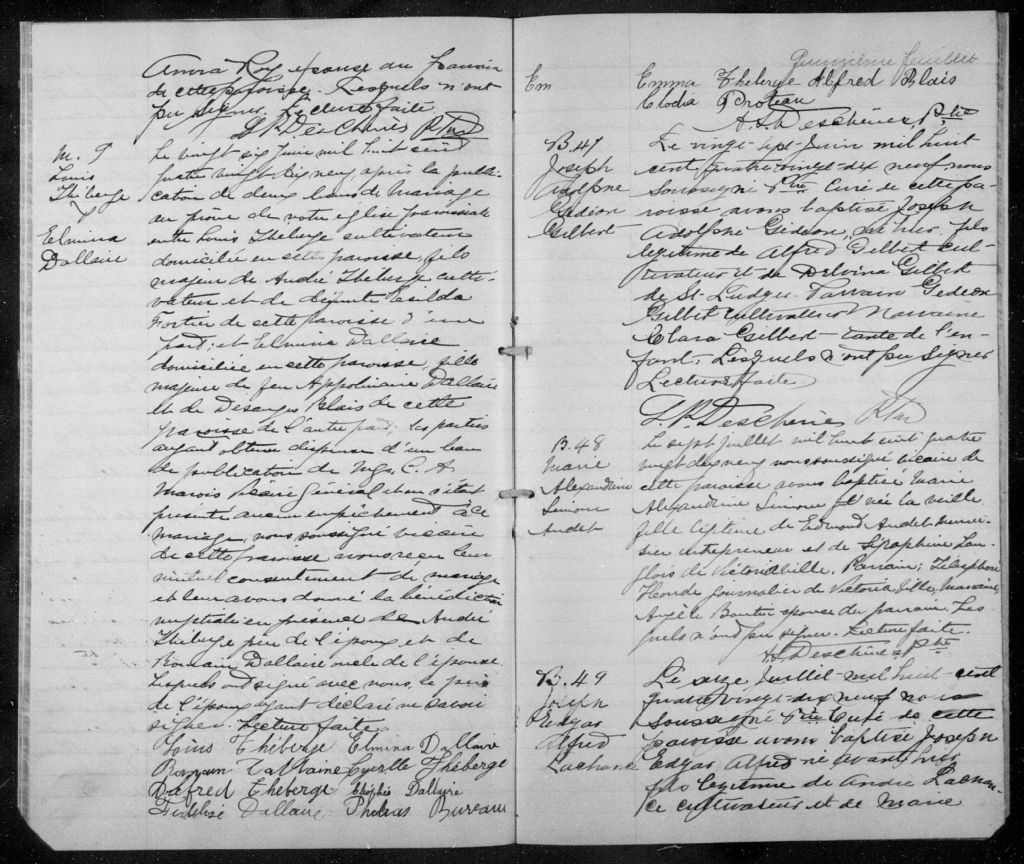 Anna Roy épouse du Parrain
de cette paroisse. Lesquels n'ont
pu signer. Lecture faite
Ptre
M. 9
Louis
Théberge
&
Elmina
Dallaire
Le vingt six Juin mil huit cent
quatre vingt dix neuf, après la publi-
cation de deux bans de mariage
au prône de notre église paroissiale
entre Louis Theberge cultivateur
domicilié en cette paroisse, fils
majeur de André Theberge culti-
vateur et de défunte
Fortier de cette paroisse d'une
part; et Elmina Dallaire
domiciliée en cette paroisse, fille
majeure de feu Appolinaire Dallaire
et de Désanges Blais de cette
paroisse de l'autre part; les parties
ayant obtenu dispense d'un ban
de publication de Mgr. C. A
Marois Vicaire Général et ne s'étant
présenté aucun empêchement à ce
mariage, nous soussigné vicaire
de cette paroisse avons reçu leur
mutuel consentement de mariage
et leur avons donné la bénédiction
nuptiale en présence de André
Théberge père de l'époux et de
Romain Dallaire oncle de l'épouse
lesquels ont signé avec nous, le père
de l'époux ayant déclaré ne savoir
signer. Lecture faite.
Louis Théberge Elmina Dallaire
Théberge
Dalfred Theberge Dallaire
Dallaire Philias Bureau
Quinzième feuillet
Em
Emma Theberge Alfred Blais
Clodia Proteau
Deschènes Ptre
B. 47
Joseph
Adolphe
Gédéon
Gilbert
Le vingt-sept Juin mil huit
cent quatre-vingt-dix neuf nous
soussigné Ptre Curé de cette pa-
roisse avons baptisé Joseph
Adolphe Gédéon, né hier, fils
légitime de Alfred Gilbert cul-
tivateur et de Delvina Gilbert
de St. Ludger. Parrain Gédéon
Gilbert cultivateur Marraine
Clara Gilbert tante de l'en-
fant. Lesquels n'ont pu signer
Lecture faite
Deschènes Ptre
B. 48
Marie
Alexandrine
Simone
Audet
Le sept Juillet mil huit cent quatre
vingt dix neuf nous soussigné vicaire de
cette paroisse avons baptisé Marie
Alexandrine Simone née la veille
fille légitime de Edmond Audet menui-
sier entrepreneur et de Séraphine Lan-
glois de Victoriaville. Parrain; Télesphore
Houde journalier de Victoriaville, Marraine,
épouse du parrain. Les
quels n'ont pu signer. Lecture faite.
Deschènes Ptre
B. 49
Joseph
Edgar
Alfred
Lachance
Le seize Juillet mil huit cent
quatre vingt-dix neuf nous
soussigné Ptre Curé de cette
paroisse avons baptisé Joseph
Edgar Alfred né avant hier
fils légitime de André Lachan-
ce cultivateur et de Marie